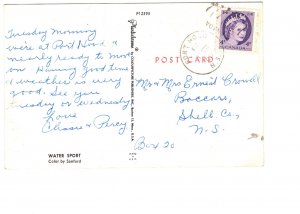 P12595
Tuesday Morning
were at Port Hood &
nearly ready to move
on, having good time
weather is very
good. See you
Tuesday or Wednesday
Love
Chassie & Percy
WATER SPORT
Color by Sanford
POST CARD
CANADA
Mr & Mrs Ernest Crowell
Baccaro,
Shelb. Co,
N.S.
Box 20